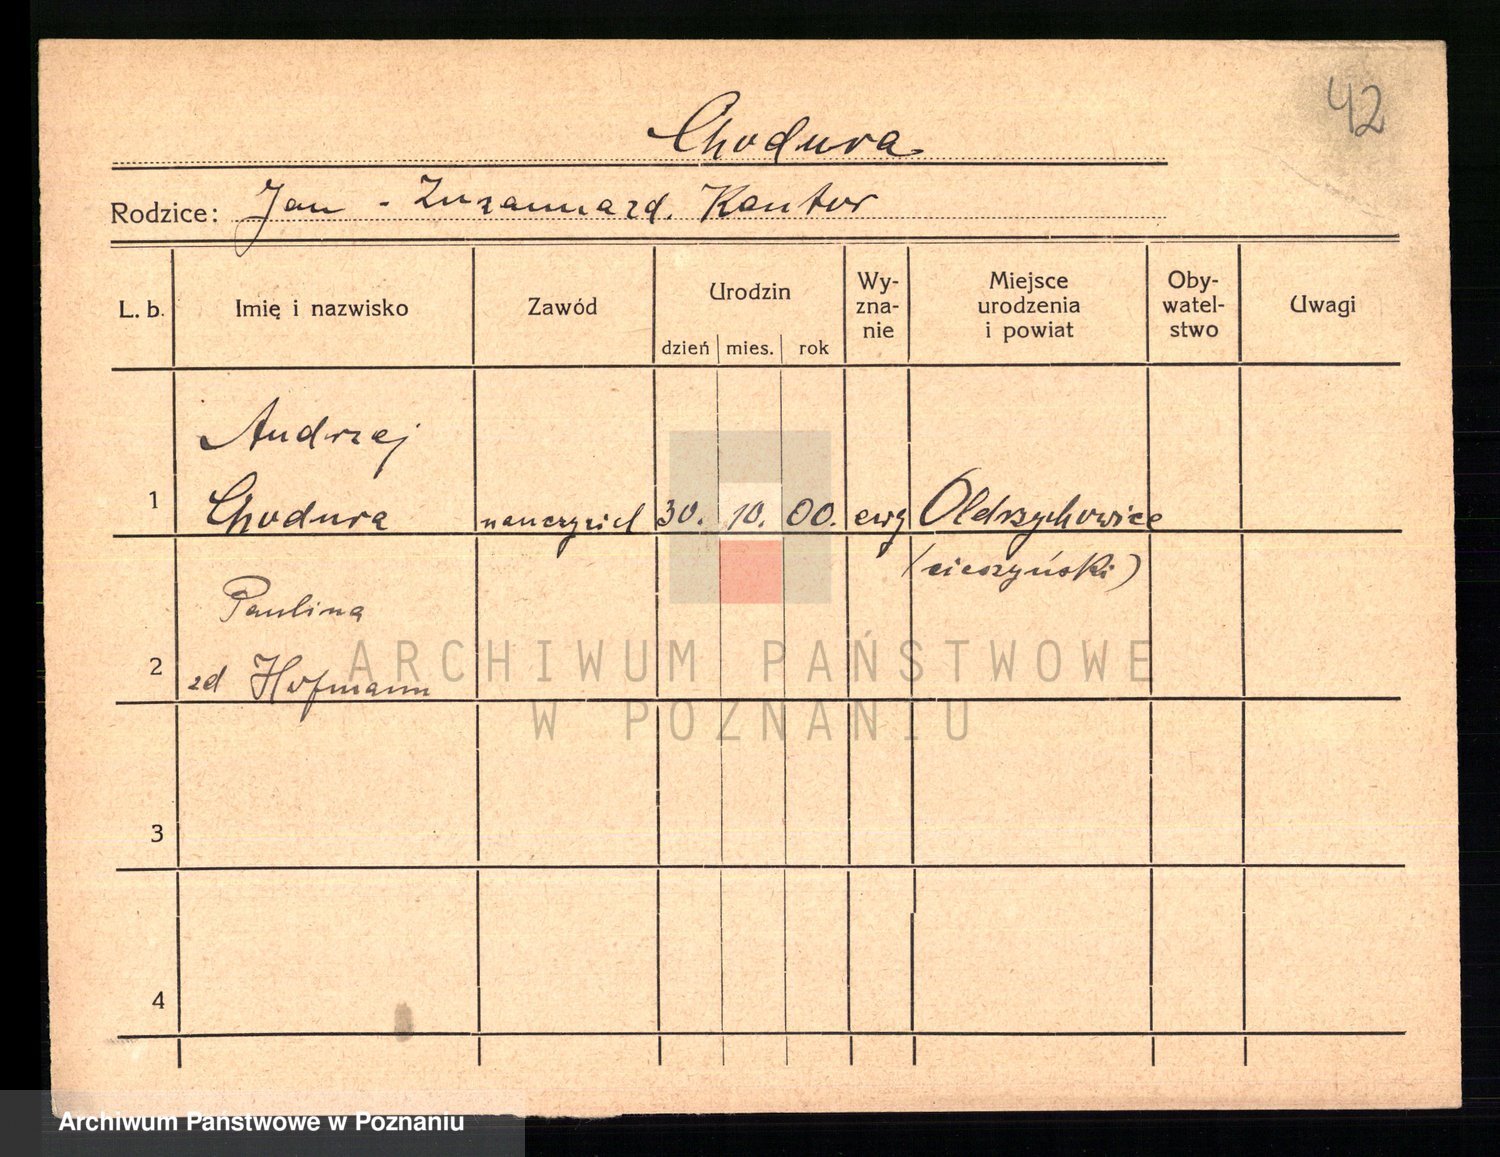 42
Chodura
Rodzice: Jan - Zuzanna zd. Kantor
L. b. Imię i nazwisko Zawód Urodzin Wy-zna-nie Miejsce urodzenia i powiat Oby-watel-stwo Uwagi
dzień mies. rok
Andrzej
1 Chodura nauczyciel 30. 10. 00. ewg Oldrzychowice
(cieszyński)
Paulina
2 zd Hofmann
ARCHIWUM PAŃSTWOWE
W POZNANIU
3
4
Archiwum Państwowe w Poznaniu